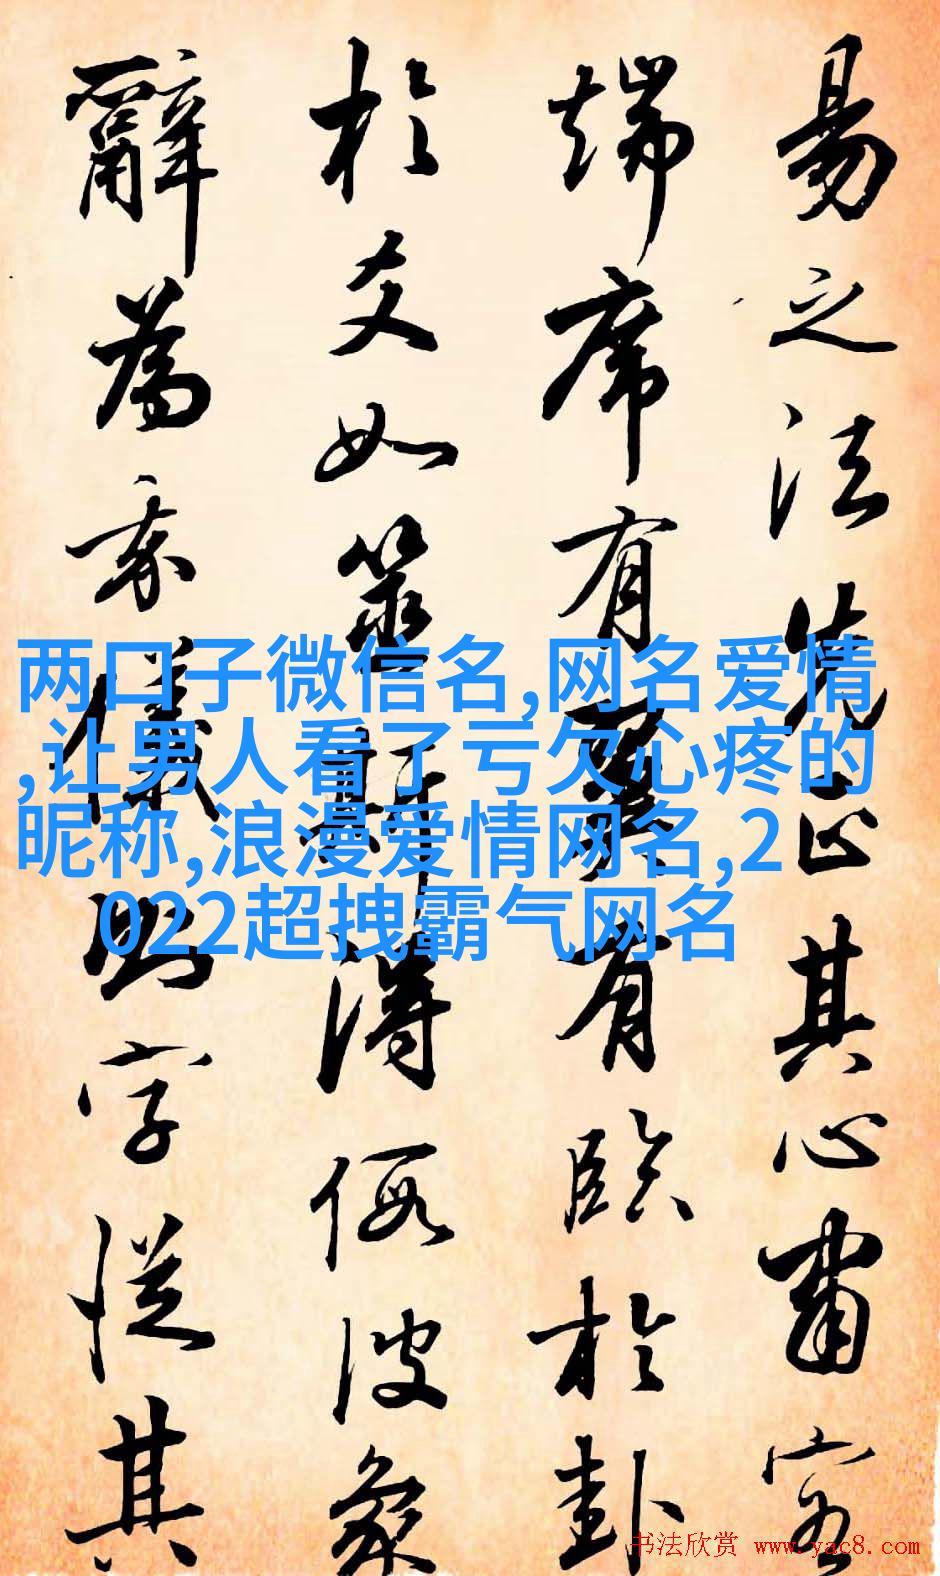 易之法先正其心肅容
端席有翳有臨於卦
於爻如筮斯得假彼象
辭為忝儀則字從其
两口子微信名,网名爱情
,让男人看了亏欠心疼的
昵称,浪漫爱情网名,2
022超拽霸气网名
书法欣赏 www.yac8.com